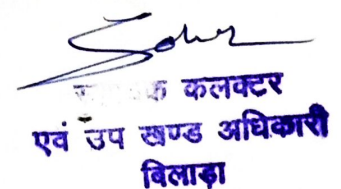 कलक्टर
एवं उप खण्ड अधिकारी
बिलाड़ा